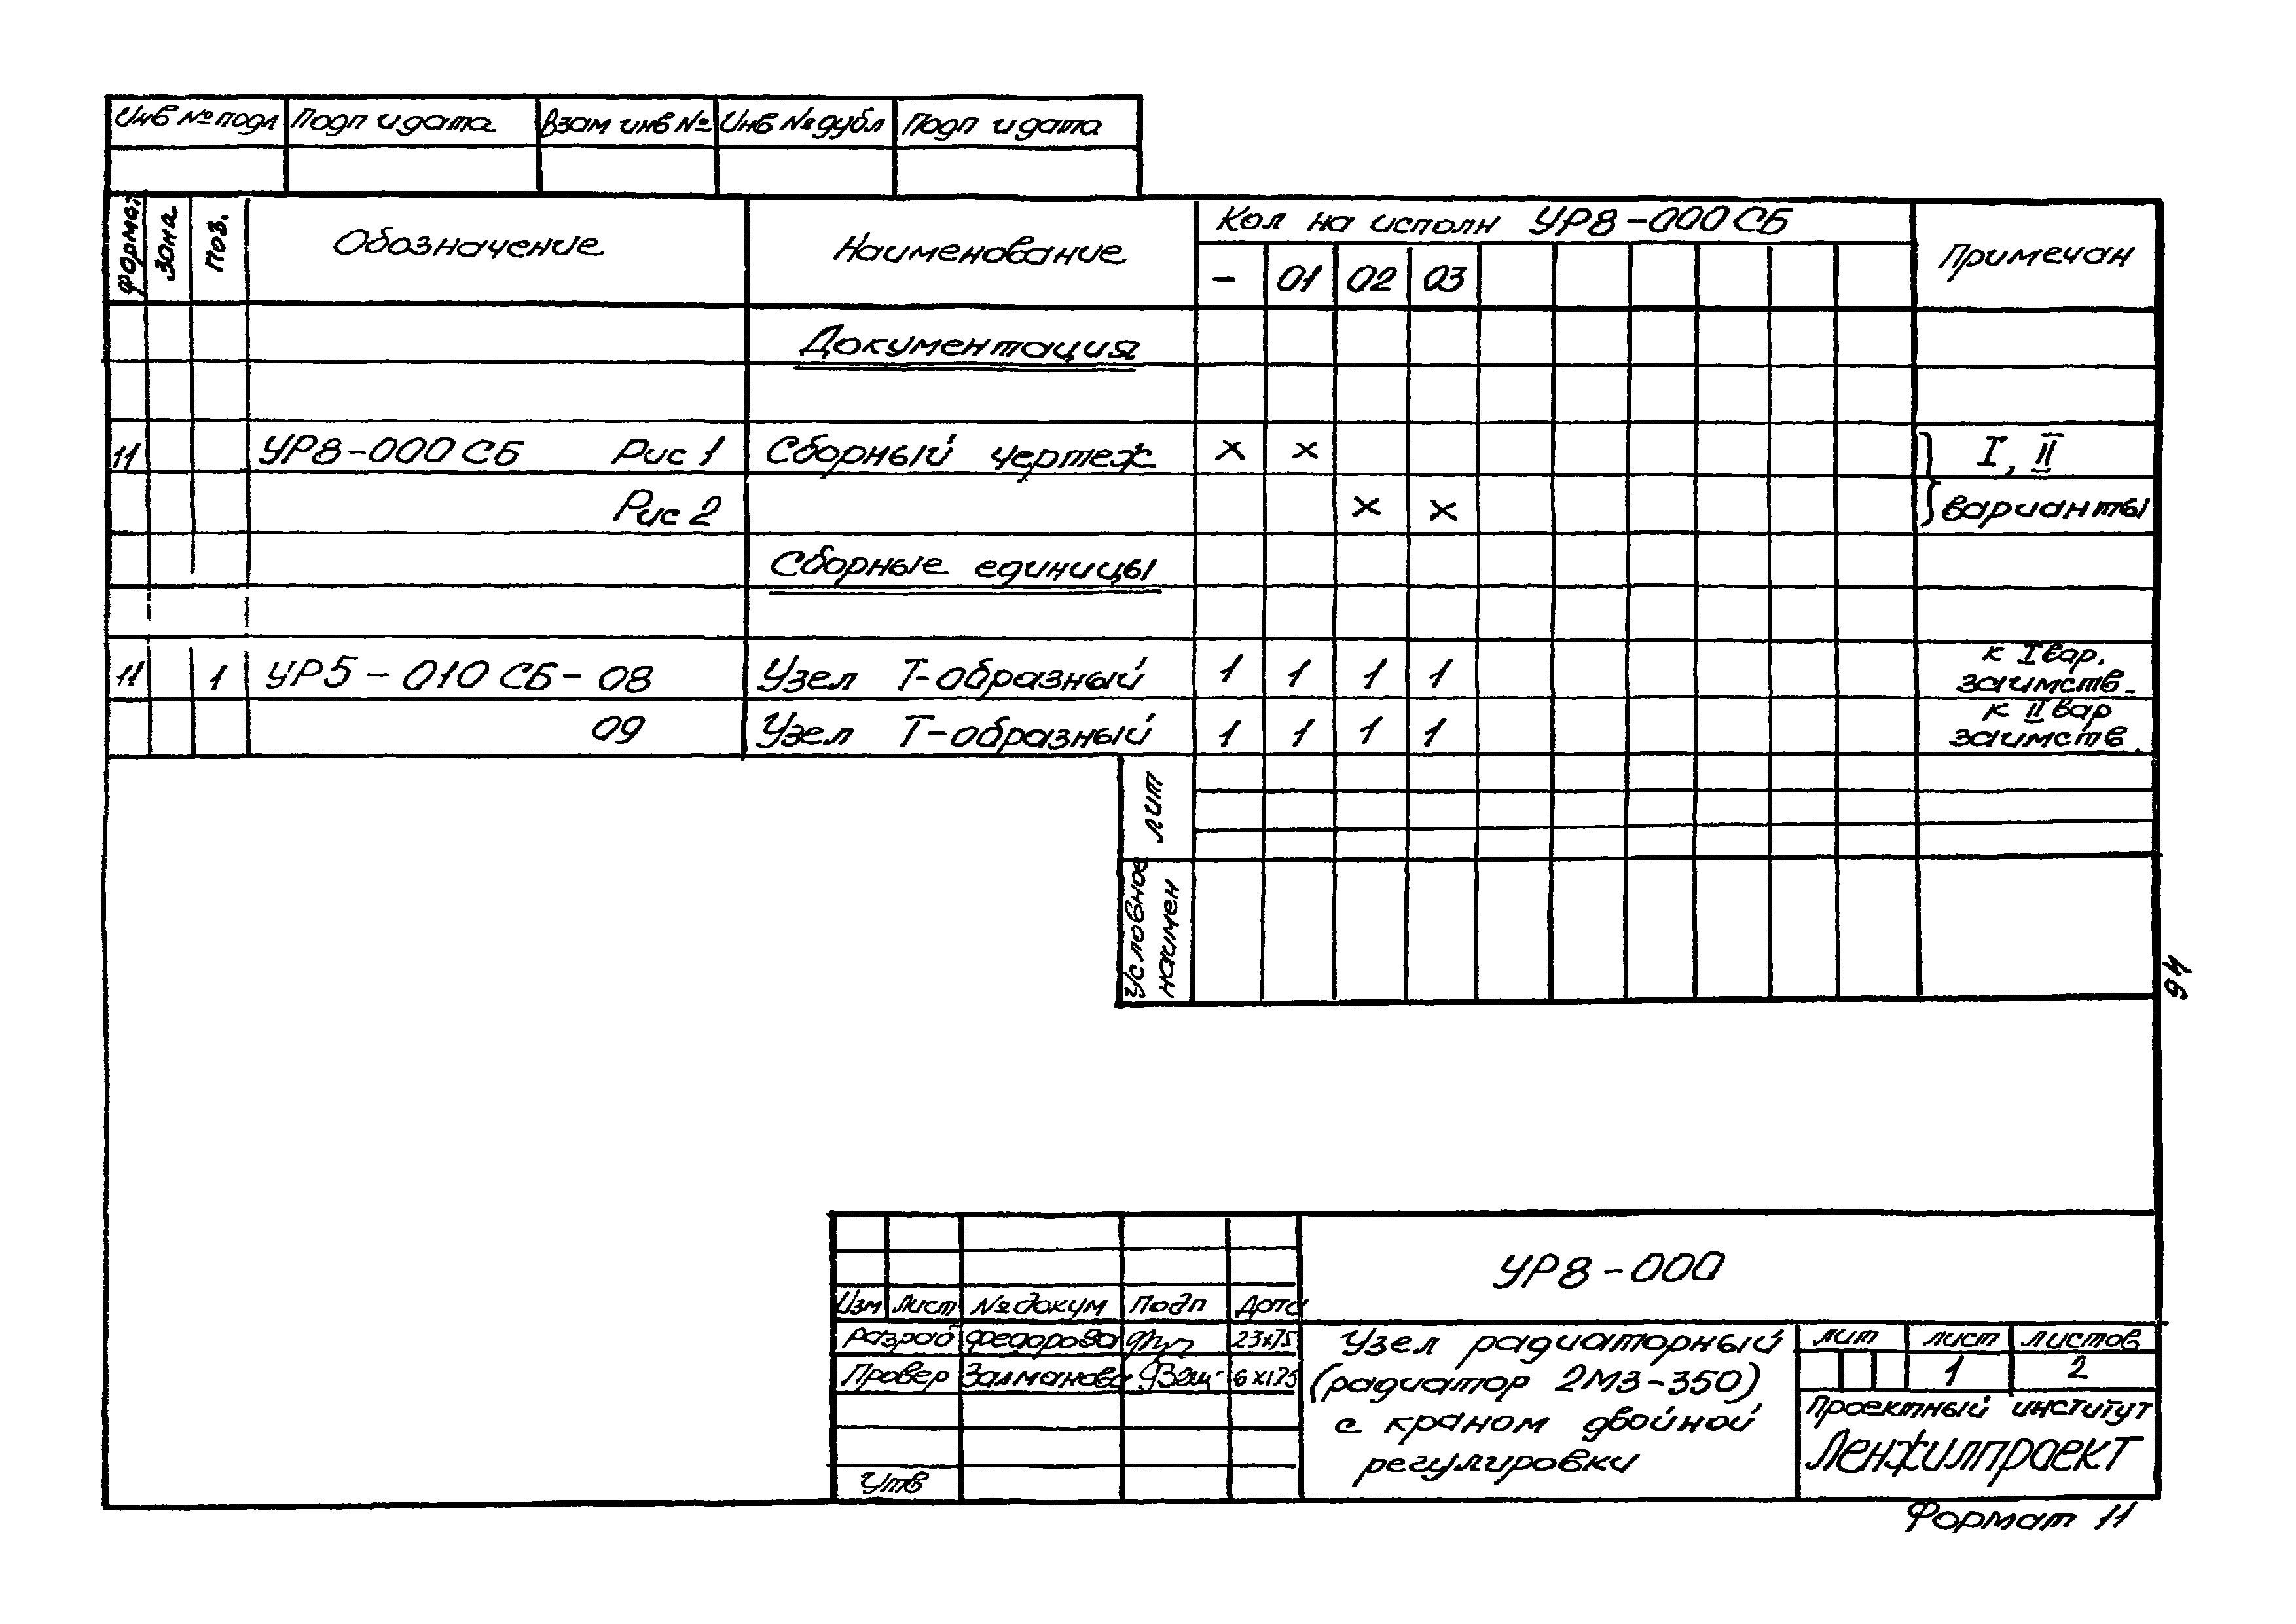 Инв № подл Подп и дата Взам инв № Инв № дубл Подп и дата
Формат Зона Поз. Обозначение Наименование Кол на исполн УР8-000 СБ Примечан
- 01 02 03
Документация
11 УР8-000 СБ Рис 1 Сборный чертеж x x I, II
Рис 2 x x варианты
Сборные единицы
11 1 УР5-010 СБ-08 Узел Т-образный 1 1 1 1 к I вар.
заимств.
09 Узел Т-образный 1 1 1 1 к II вар
заимств.
Лит
Условное
наимен
46
УР8-000
Изм Лист № докум Подп Дата
Разраб Федорова 23 X 75
Провер Залманова 6 XI 75
Утв
Узел радиаторный
(радиатор 2МЗ-350)
с краном двойной
регулировки
Лит Лист Листов
1 2
Проектный институт
Ленжилпроект
Формат 11